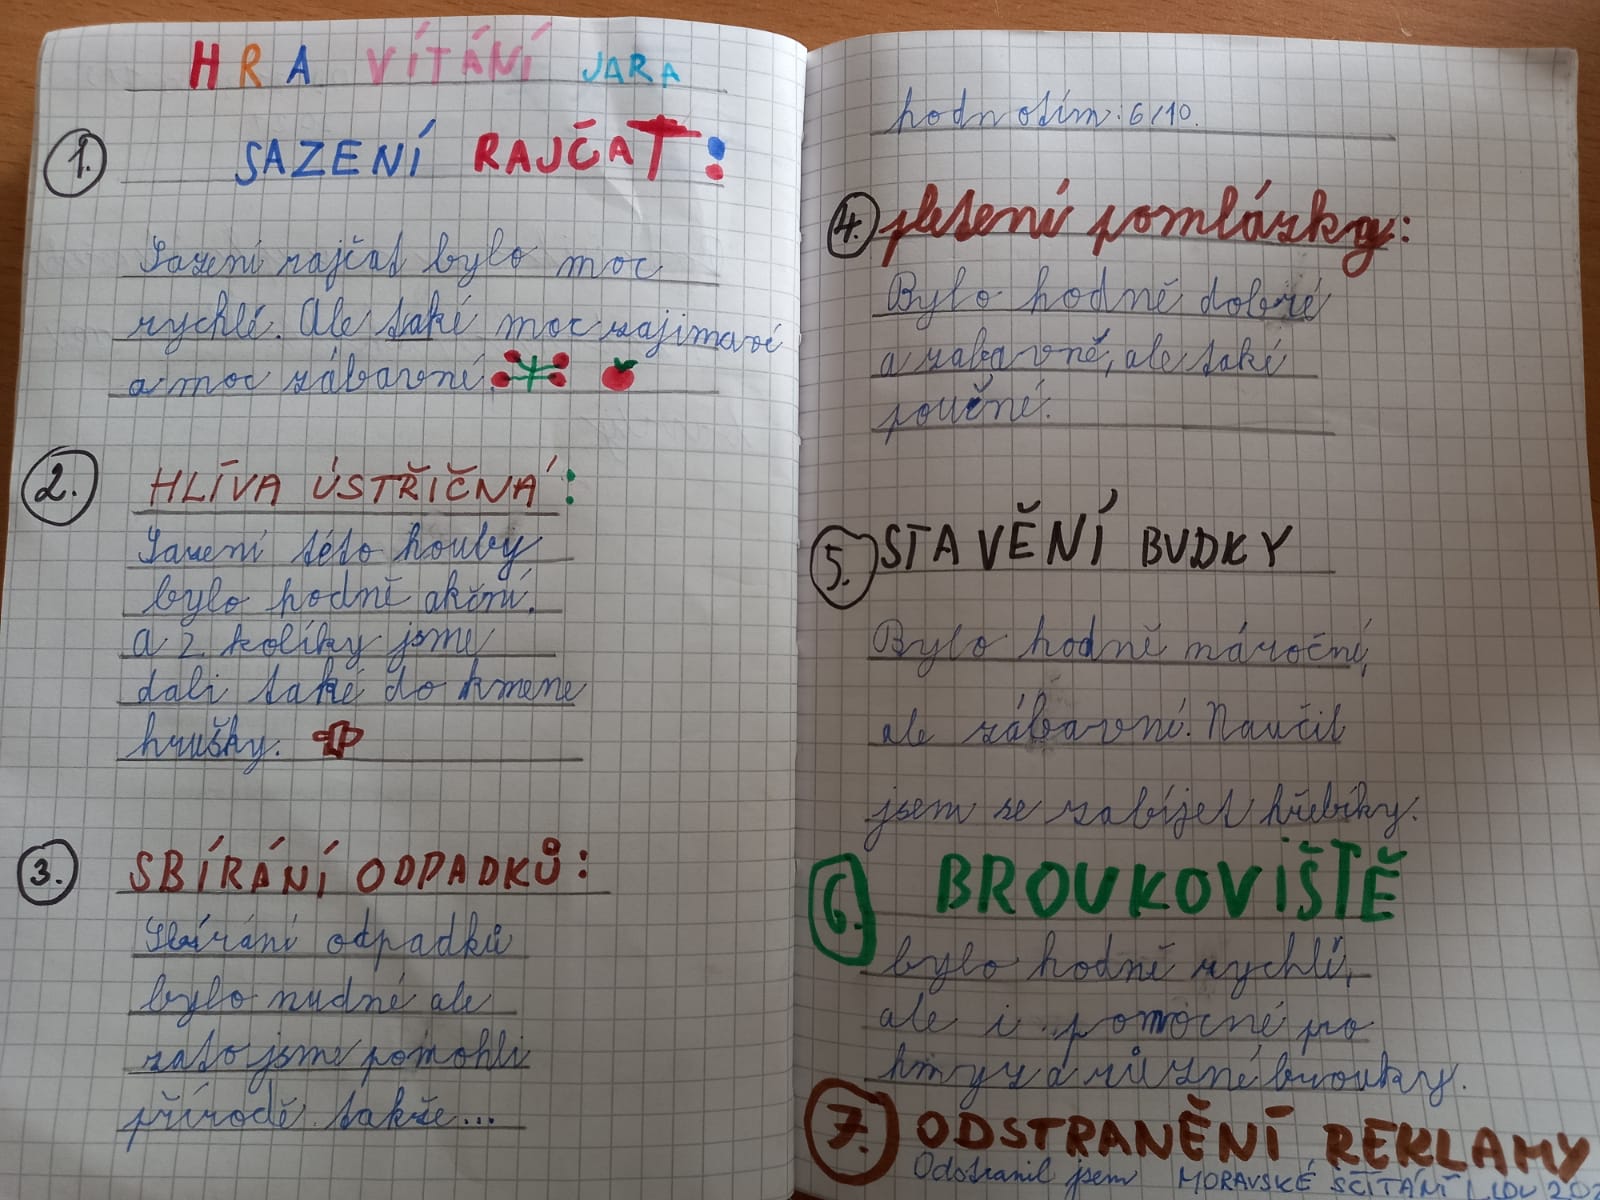 HRA VÍTÁNÍ JARA
1. SAZENÍ RAJČAT:
Sazení rajčat bylo moc
rychlé. Ale také moc zajimavé
a moc zábavné.
2. HLÍVA ÚSTŘIČNÁ:
Sazení této houby
bylo hodně akční.
a 2 kolíky jsme
dali také do kmene
hrušky.
3. SBÍRÁNÍ ODPADKŮ:
Sbírání odpadků
bylo nudné ale
zato jsme pomohli
přírodě takže...
hodnotím: 6/10.
4. pletení pomlázky:
Bylo hodně dobré
a zabavně, ale také
poučné.
5. STAVĚNÍ BUDKY
Bylo hodně náročné,
ale zábavní. Naučil
jsem se zabíjet hřebíky.
6. BROUKOVIŠTĚ
bylo hodně rychlí,
ale i pomocné pro
hmyz a různé brouky.
7. ODSTRANĚNÍ REKLAMY
Odstranil jsem MORAVSKÉ SČÍTÁNÍ